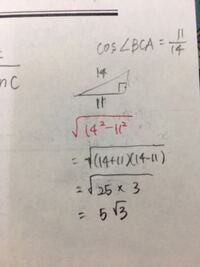 cos∠BCA = 11/14
nC
14
11
√14²-11²
= √(14+11)(14-11)
= √25 × 3
= 5√3